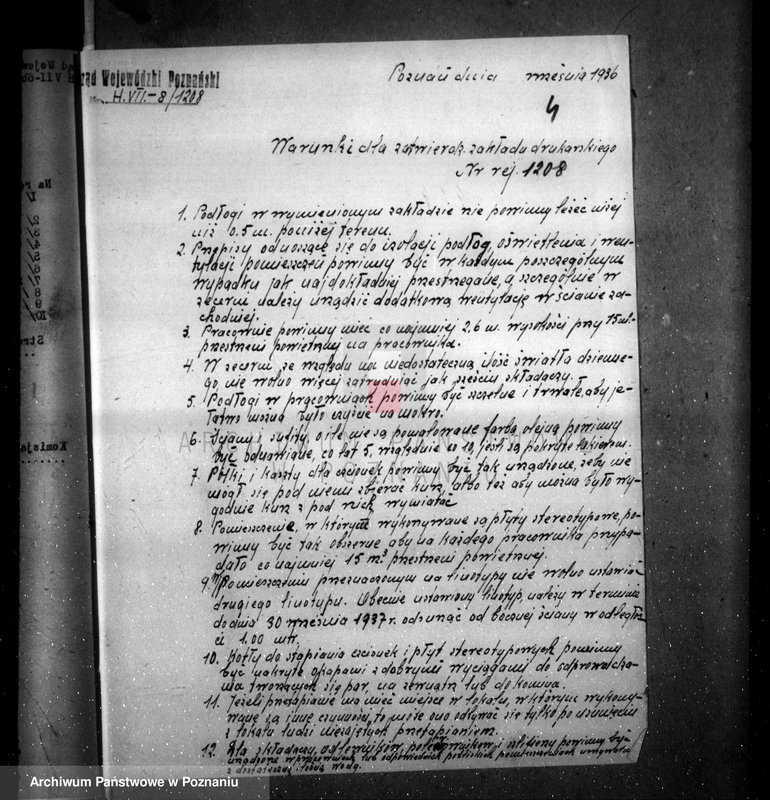 Urząd Wojewódzki Poznański
H.VII.-8/1208
Poznań dnia września 1936
4
Warunki dla zatwierdz. zakładu drukarskiego
Nr rej. 1208
1. Podłogi w wymienionym zakładzie nie powinny leżeć niżej
niż 0.5 m. poniżej terenu.
2. Przepisy odnoszące się do izolacji podłog, oświetlenia i wen-
tylacji pomieszczeń powinny być w każdym poszczególnym
wypadku jak najdokładniej przestrzegane, a szczególnie w
zecerni należy urządzić dodatkową wentylację w ścianie za-
chodniej.
3. Pracownie powinny mieć co najmniej 2,6 m. wysokości przy 15 m³.
przestrzeni powietrznej na pracownika.
4. W zecerni ze względu na niedostateczną ilość światła dzienne-
go, nie wolno więcej zatrudniać jak sześciu składaczy.
5. Podłogi w pracowniach powinny być szczelne i trwałe, aby je
łatwo można było czyścić na mokro.
6. Ściany i sufity, o ile nie są pomalowane farbą olejną powinny
być odnawiane, co lat 5, względnie co 10, jeśli są pokryte lakierem.
7. Półki i kaszty dla czcionek powinny być tak urządzone, żeby nie
mógł się pod niemi zbierać kurz, albo też aby można było wy-
godnie kurz z pod nich wymiatać
8. Pomieszczenie, w którym wykonywane są płyty stereotypowe, po-
winny być tak obszerne aby na każdego pracownika przypa-
dało co najmniej 15 m³ przestrzeni powietrznej.
9. W pomieszczeniu przeznaczonym na linotypy nie wolno ustawiać
drugiego linotypu. Obecnie ustawiony linotyp, należy w terminie
do dnia 30 września 1937 r. odsunąć od bocznej ściany w odległoś
ci 1.00 mtr.
10. Kotły do stapiania czcionek i płyt stereotypowych powinny
być nakryte okapami z dobrymi wyciągami do odprowadza-
nia tworzących się par, na zewnątrz lub do komina.
11. Jeżeli przetapianie ma mieć miejsce w lokalu, w którym wykony-
wane są inne czynności, to może ono odbywać się tylko po usunięciu
z lokalu ludzi niezajętych przetapianiem.
12. Dla składaczy, odlewników i szlifierzy powinny być
urządzone w pracowniach lub odpowiednich pobliskich pomieszczeniach umywalnie
z dostateczną ilością wody.
Archiwum Państwowe w Poznaniu